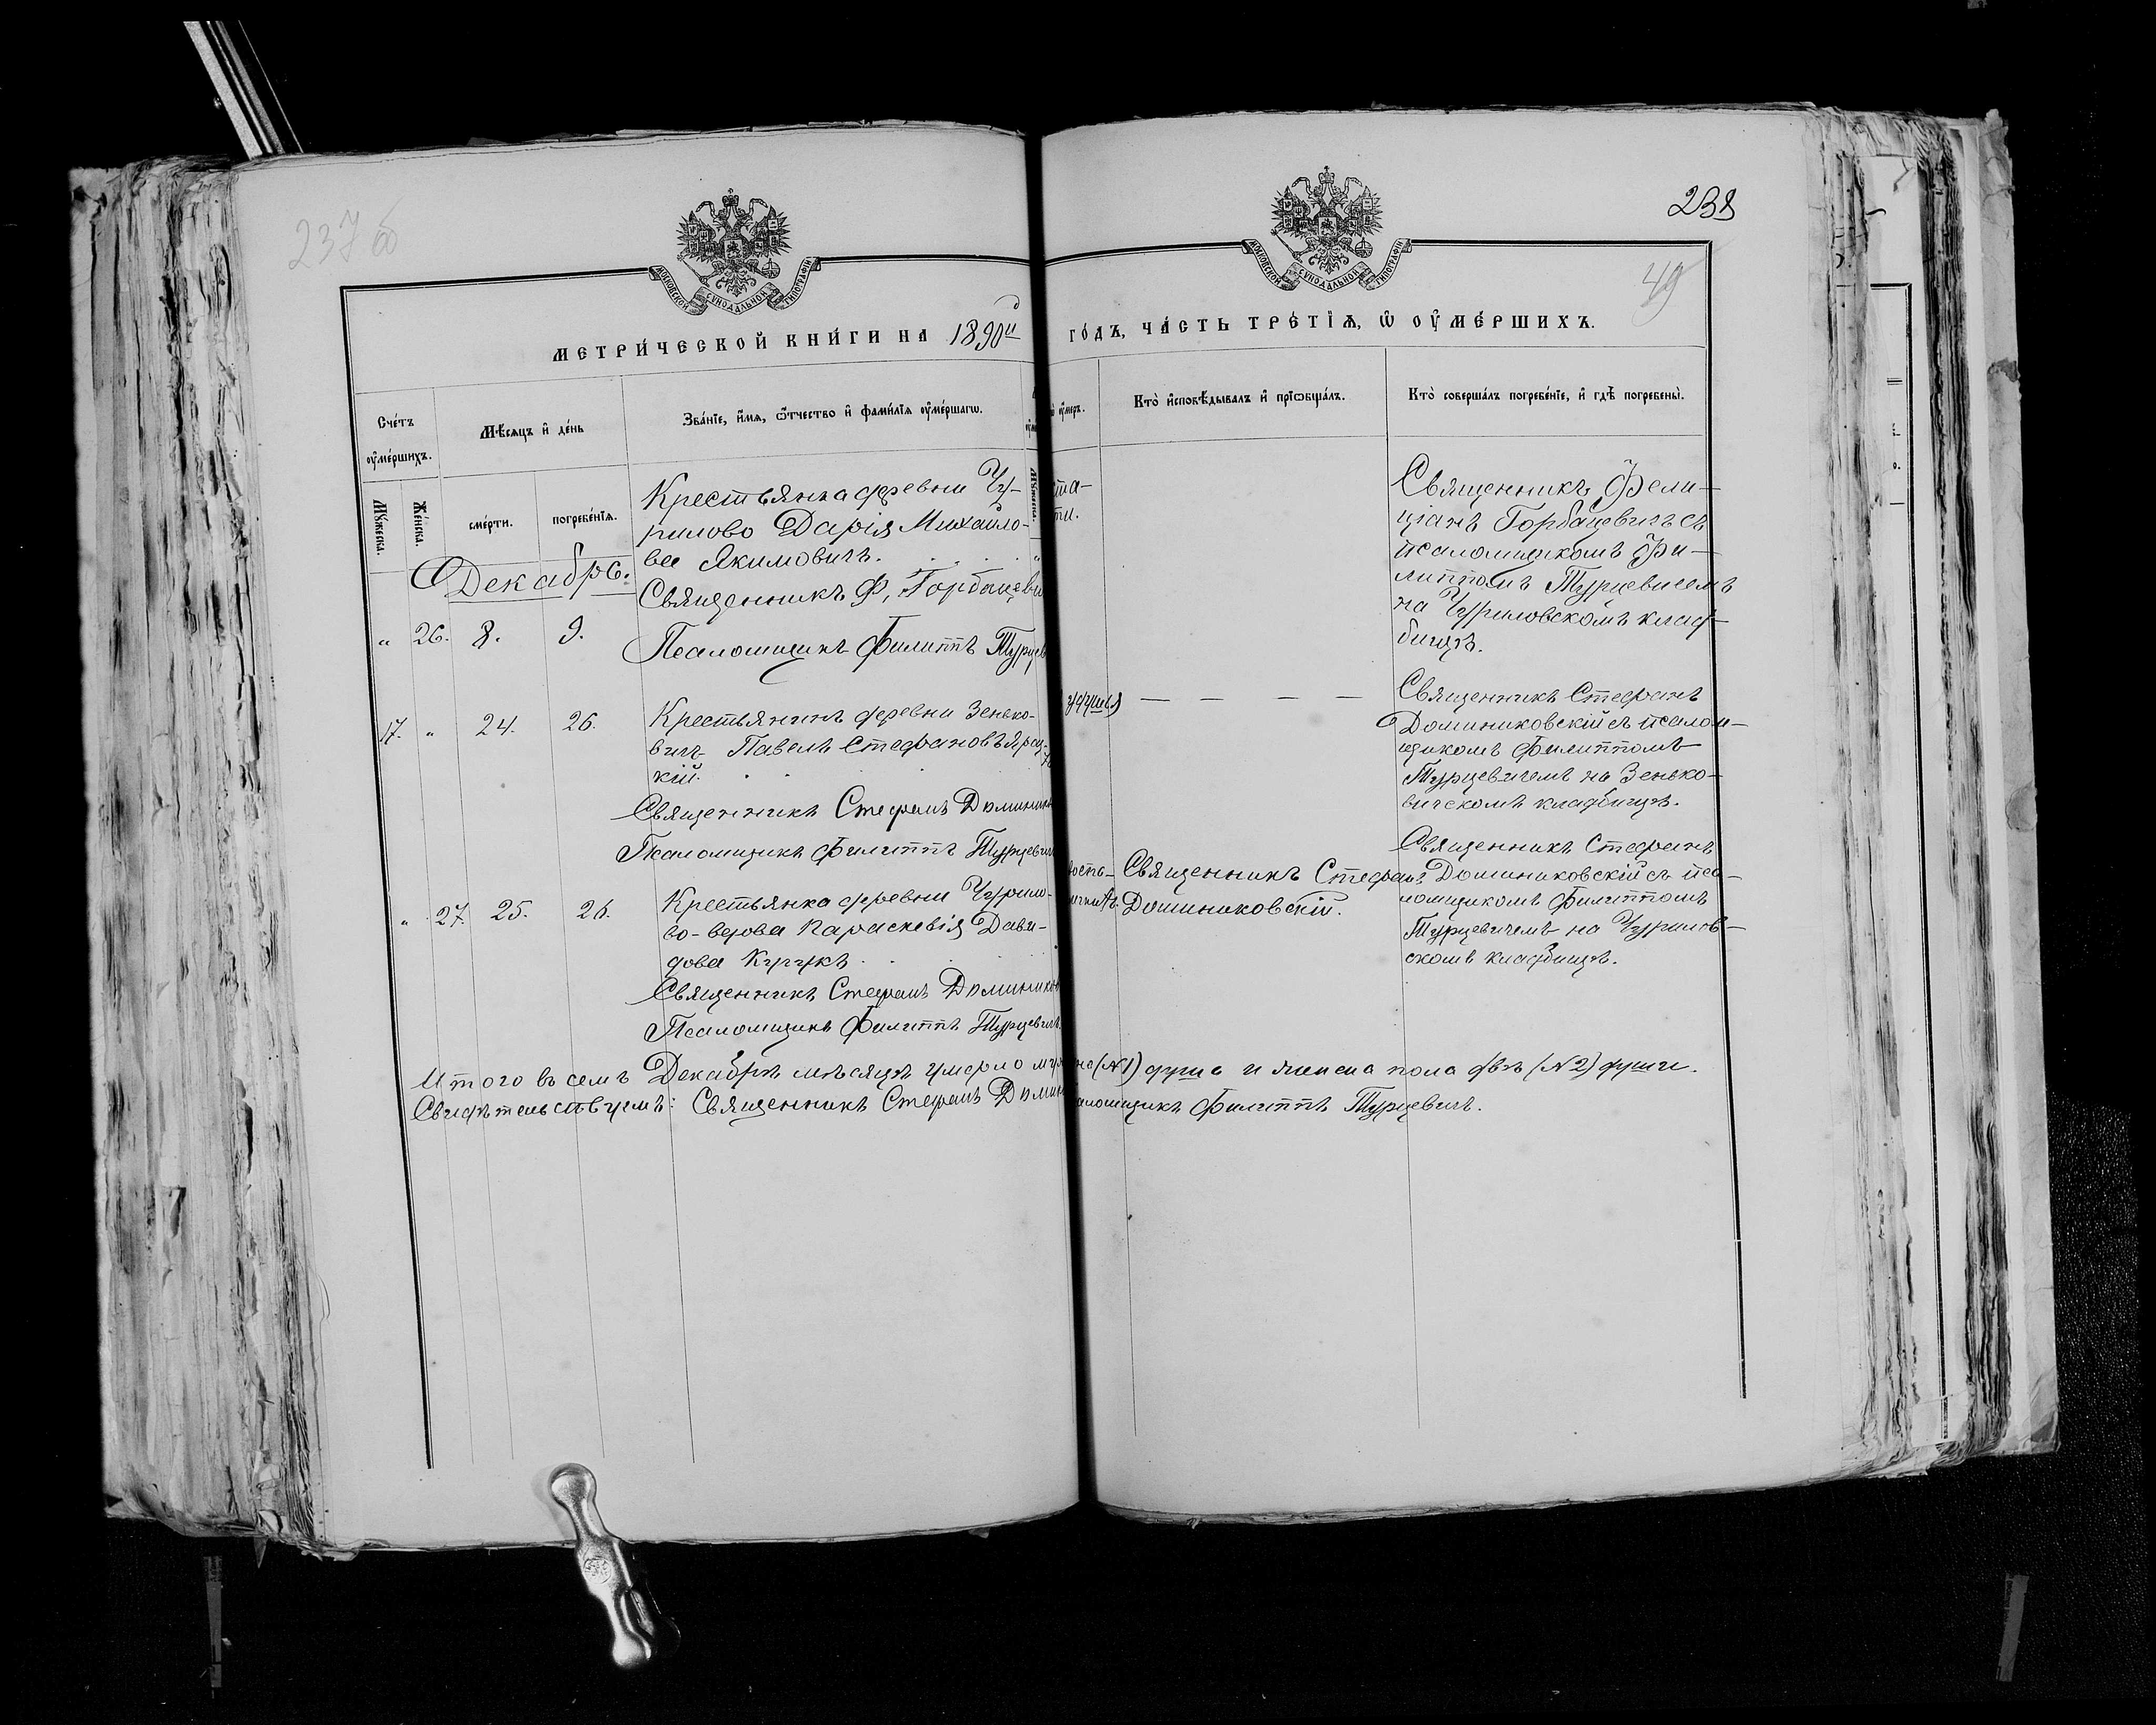 237 об
238
49
МОСКОВСКОЙ СѴНОДАЛЬНОЙ ТИПОГРАФІИ
МОСКОВСКОЙ СѴНОДАЛЬНОЙ ТИПОГРАФІИ
МЕТРИ́ЧЕСКОЙ КНИ́ГИ НА 1890й
ГО́ДЪ, ЧА́СТЬ ТРЕ́ТІѦ, Ѡ҆ ОУ҆МЕ́РШИХЪ.
Сче́тъ оу҆ме́ршихъ.
Мѣ́сяцъ и҆ де́нь
Зва́нїе, и҆́мѧ, ѻ҆́тчество и҆ фами́лїѧ оу҆ме́ршагѡ.
оу҆́меръ.
Кто̀ и҆сповѣ́дывалъ и҆ прїѡбща́лъ.
Кто̀ соверша́лъ погребе́нїе, и҆ гдѣ̀ погребены̀.
Мꙋ́жеска.
Же́нска.
сме́рти.
погребе́нїѧ.
Мꙋ́жеска.
Декабрь.
„ 26. 8. 9.
Крестьянка деревни Чу-
рилово Дарія Михайло-
ва Якимовичъ.
Священникъ Ф. Горбацеви
Псаломщикъ Филиппъ Турцев
ста-
ти.
Священникъ Фели-
ціанъ Горбацевичъ съ
псаломщикомъ Фи-
липпомъ Турцевичемъ
на Чуриловскомъ клад-
бищѣ.
17. „ 24. 26.
Крестьянинъ деревни Зенько-
вичъ Павелъ Стефановъ
кій.
Священникъ Стефанъ Доминик
Псаломщикъ Филиппъ Турцевич
— — — —
Священникъ Стефанъ
Доминиковскій съ псалом-
щикомъ Филиппомъ
Турцевичемъ на Зенько-
вичскомъ кладбищѣ.
„ 27. 25. 26.
Крестьянка деревни Чурило-
во-вдова Параскевія Дави-
дова Кучукъ
Священникъ Стефанъ Домиников
Псаломщикъ Филиппъ Турцевичъ
Священникъ Стефанъ
Доминиковскій.
Священникъ Стефанъ
Доминиковскій съ пса-
ломщикомъ Филиппомъ
Турцевичемъ на Чурилов-
скомъ кладбищѣ.
Итого въ семъ Декабрѣ мѣсяцѣ умерло (№1) душа и женска пола двѣ (№2) души.
Свидѣтельствуемъ: Священникъ Стефанъ Домин аломщикъ Филиппъ Турцевичъ.